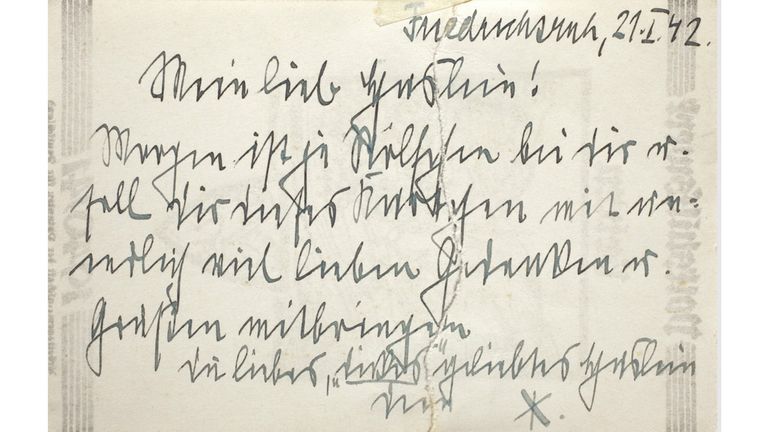 Friedrichsruh, 21.I.42.
Mein lieb Haslein!
Morgen ist ja Wölfchen bei dir u.
soll dir dieses Kärtchen mit un-
endlich viel lieben Gedanken u.
Grüßen mitbringen
Du liebes, „dickes“ geliebtes Haslein
dein